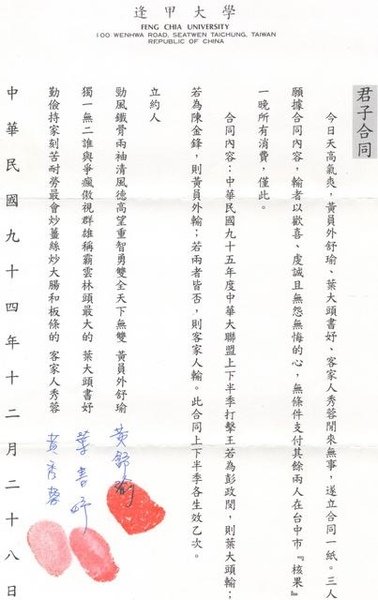 逢甲大學
FENG CHIA UNIVERSITY
100 WENHWA ROAD, SEATWEN TAICHUNG, TAIWAN
REPUBLIC OF CHINA
君子合同
今日天高氣爽，黃員外舒瑜、葉大頭書妤、客家人秀蓉閒來無事，遂立合同一紙。三人
願據合同內容，輸者以歡喜、虔誠且無怨無悔的心，無條件支付其餘兩人在台中市『核果』
一晚所有消費，僅此。
合同內容：中華民國九十五年度中華大聯盟上下半季打擊王若為彭政閔，則葉大頭輸；
若為陳金鋒，則黃員外輸；若兩者皆否，則客家人輸。此合同上下半季各生效乙次。
立約人
勁風鐵骨兩袖清風德高望重智勇雙全天下無雙 黃員外舒瑜
獨一無二誰與爭瘋傲視群雄稱霸雲林頭最大的 葉大頭書妤
勤儉持家刻苦耐勞最會炒薑絲炒大腸和板條的 客家人秀蓉
黃舒瑜
葉書妤
黃秀蓉
中華民國九十四年十二月二十八日